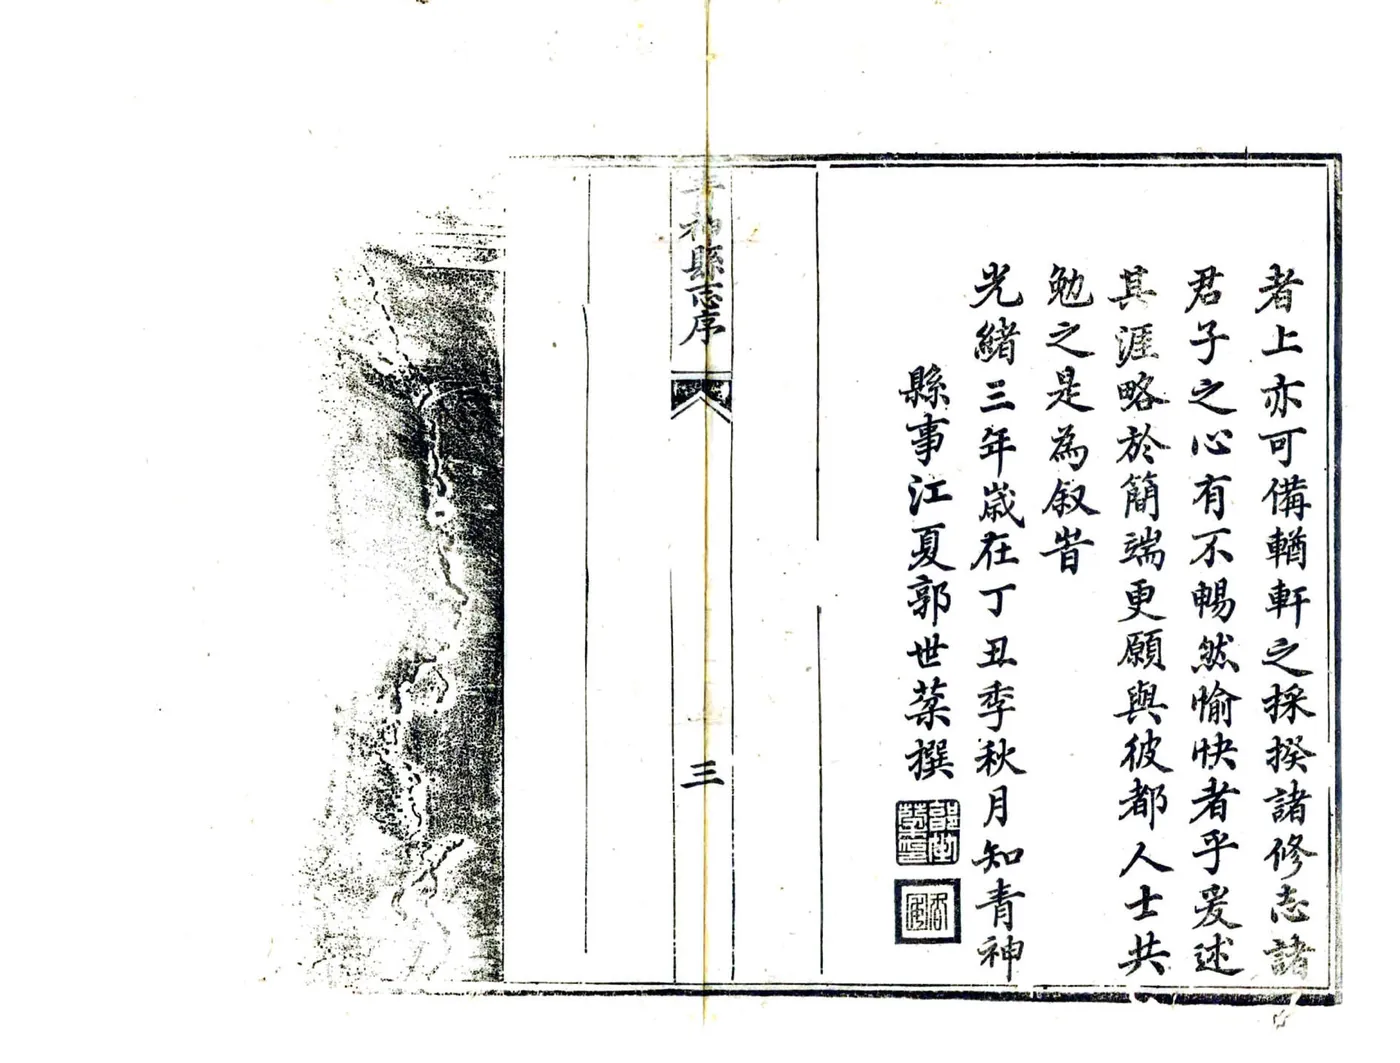 者上亦可備輶軒之採揆諸修志諸
君子之心有不暢然愉快者乎爰述
其涯略於簡端更願與彼都人士共
勉之是為叙旹
光緒三年歲在丁丑季秋月知青神
縣事江夏郭世棻撰
神縣志序
三